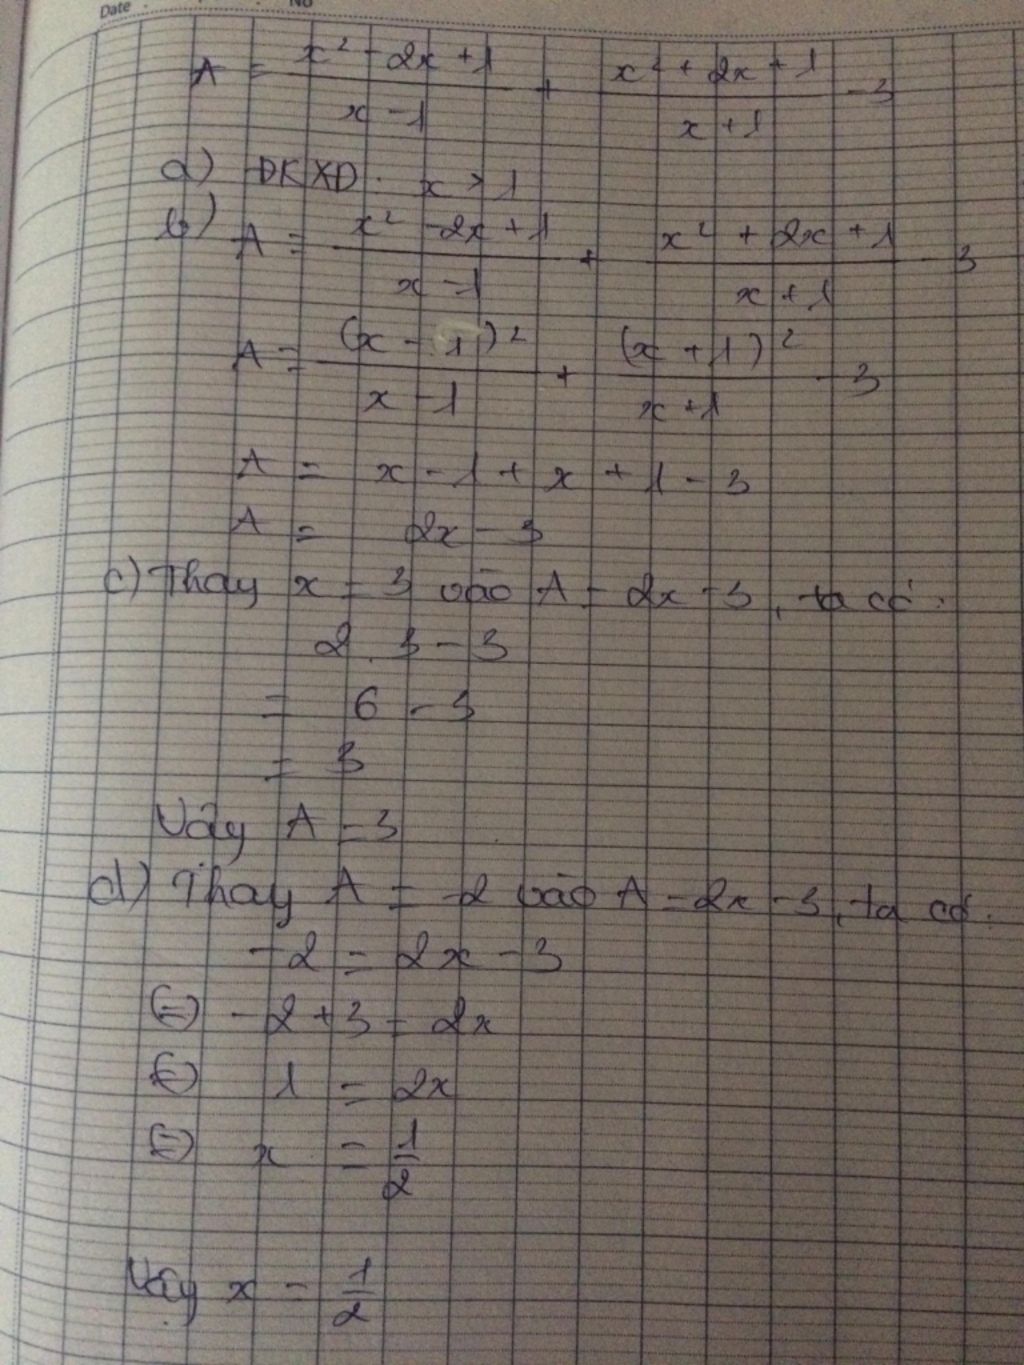 Date No
A = \frac{x² - 2x + 1}{x - 1} + \frac{x² + 2x + 1}{x + 1} - 3
a) ĐKXĐ: x > 1
b) A = \frac{x² - 2x + 1}{x - 1} + \frac{x² + 2x + 1}{x + 1} - 3
A = \frac{(x - 1)²}{x - 1} + \frac{(x + 1)²}{x + 1} - 3
A = x - 1 + x + 1 - 3
A = 2x - 3
c) Thay x = 3 vào A = 2x - 3, ta có:
2.3 - 3
= 6 - 3
= 3
Vậy A = 3
d) Thay A = -2 vào A = 2x - 3, ta có:
-2 = 2x - 3
(=) -2 + 3 = 2x
(=) 1 = 2x
(=) x = \frac{1}{2}
Vậy x = \frac{1}{2}